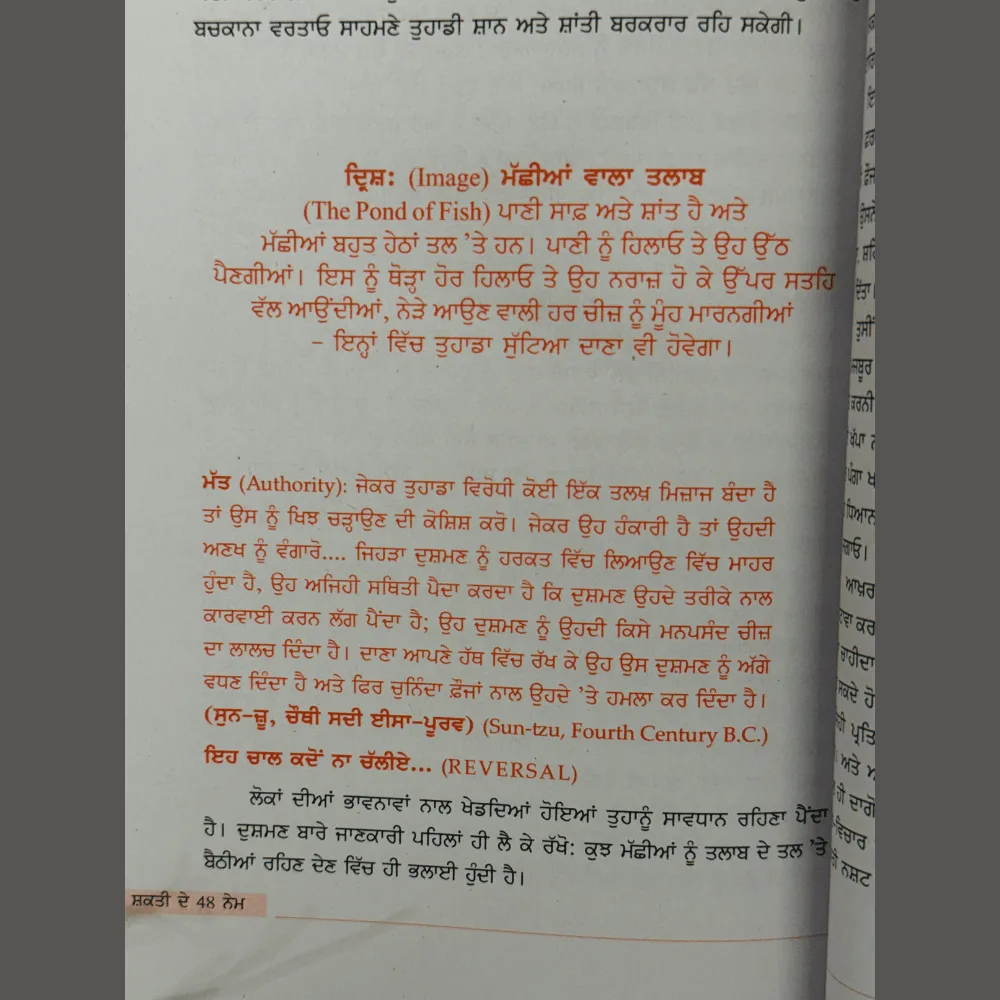 ਬਚਕਾਨਾ ਵਰਤਾਓ ਸਾਹਮਣੇ ਤੁਹਾਡੀ ਸ਼ਾਨ ਅਤੇ ਸ਼ਾਂਤੀ ਬਰਕਰਾਰ ਰਹਿ ਸਕੇਗੀ।
ਦ੍ਰਿਸ਼: (Image) ਮੱਛੀਆਂ ਵਾਲਾ ਤਲਾਬ
(The Pond of Fish) ਪਾਣੀ ਸਾਫ਼ ਅਤੇ ਸ਼ਾਂਤ ਹੈ ਅਤੇ
ਮੱਛੀਆਂ ਬਹੁਤ ਹੇਠਾਂ ਤਲ 'ਤੇ ਹਨ। ਪਾਣੀ ਨੂੰ ਹਿਲਾਓ ਤੇ ਉਹ ਉੱਠ
ਪੈਣਗੀਆਂ। ਇਸ ਨੂੰ ਥੋੜ੍ਹਾ ਹੋਰ ਹਿਲਾਓ ਤੇ ਉਹ ਨਰਾਜ਼ ਹੋ ਕੇ ਉੱਪਰ ਸਤਹਿ
ਵੱਲ ਆਉਂਦੀਆਂ, ਨੇੜੇ ਆਉਣ ਵਾਲੀ ਹਰ ਚੀਜ਼ ਨੂੰ ਮੂੰਹ ਮਾਰਨਗੀਆਂ
– ਇਨ੍ਹਾਂ ਵਿੱਚ ਤੁਹਾਡਾ ਸੁੱਟਿਆ ਦਾਣਾ ਵੀ ਹੋਵੇਗਾ।
ਮੱਤ (Authority): ਜੇਕਰ ਤੁਹਾਡਾ ਵਿਰੋਧੀ ਕੋਈ ਇੱਕ ਤਲਖ਼ ਮਿਜ਼ਾਜ ਬੰਦਾ ਹੈ
ਤਾਂ ਉਸ ਨੂੰ ਖਿਝ ਚੜ੍ਹਾਉਣ ਦੀ ਕੋਸ਼ਿਸ਼ ਕਰੋ। ਜੇਕਰ ਉਹ ਹੰਕਾਰੀ ਹੈ ਤਾਂ ਉਹਦੀ
ਅਣਖ ਨੂੰ ਵੰਗਾਰੋ.... ਜਿਹੜਾ ਦੁਸ਼ਮਣ ਨੂੰ ਹਰਕਤ ਵਿੱਚ ਲਿਆਉਣ ਵਿੱਚ ਮਾਹਰ
ਹੁੰਦਾ ਹੈ, ਉਹ ਅਜਿਹੀ ਸਥਿਤੀ ਪੈਦਾ ਕਰਦਾ ਹੈ ਕਿ ਦੁਸ਼ਮਣ ਉਹਦੇ ਤਰੀਕੇ ਨਾਲ
ਕਾਰਵਾਈ ਕਰਨ ਲੱਗ ਪੈਂਦਾ ਹੈ; ਉਹ ਦੁਸ਼ਮਣ ਨੂੰ ਉਹਦੀ ਕਿਸੇ ਮਨਪਸੰਦ ਚੀਜ਼
ਦਾ ਲਾਲਚ ਦਿੰਦਾ ਹੈ। ਦਾਣਾ ਆਪਣੇ ਹੱਥ ਵਿੱਚ ਰੱਖ ਕੇ ਉਹ ਉਸ ਦੁਸ਼ਮਣ ਨੂੰ ਅੱਗੇ
ਵਧਣ ਦਿੰਦਾ ਹੈ ਅਤੇ ਫਿਰ ਚੁਨਿੰਦਾ ਫ਼ੌਜਾਂ ਨਾਲ ਉਹਦੇ 'ਤੇ ਹਮਲਾ ਕਰ ਦਿੰਦਾ ਹੈ।
(ਸੁਨ-ਜ਼ੂ, ਚੌਥੀ ਸਦੀ ਈਸਾ-ਪੂਰਵ) (Sun-tzu, Fourth Century B.C.)
ਇਹ ਚਾਲ ਕਦੋਂ ਨਾ ਚੱਲੀਏ... (REVERSAL)
ਲੋਕਾਂ ਦੀਆਂ ਭਾਵਨਾਵਾਂ ਨਾਲ ਖੇਡਦਿਆਂ ਹੋਇਆਂ ਤੁਹਾਨੂੰ ਸਾਵਧਾਨ ਰਹਿਣਾ ਪੈਂਦਾ
ਹੈ। ਦੁਸ਼ਮਣ ਬਾਰੇ ਜਾਣਕਾਰੀ ਪਹਿਲਾਂ ਹੀ ਲੈ ਕੇ ਰੱਖੋ: ਕੁਝ ਮੱਛੀਆਂ ਨੂੰ ਤਲਾਬ ਦੇ ਤਲ 'ਤੇ
ਬੈਠੀਆਂ ਰਹਿਣ ਦੇਣ ਵਿੱਚ ਹੀ ਭਲਾਈ ਹੁੰਦੀ ਹੈ।
ਸ਼ਕਤੀ ਦੇ 48 ਨੇਮ